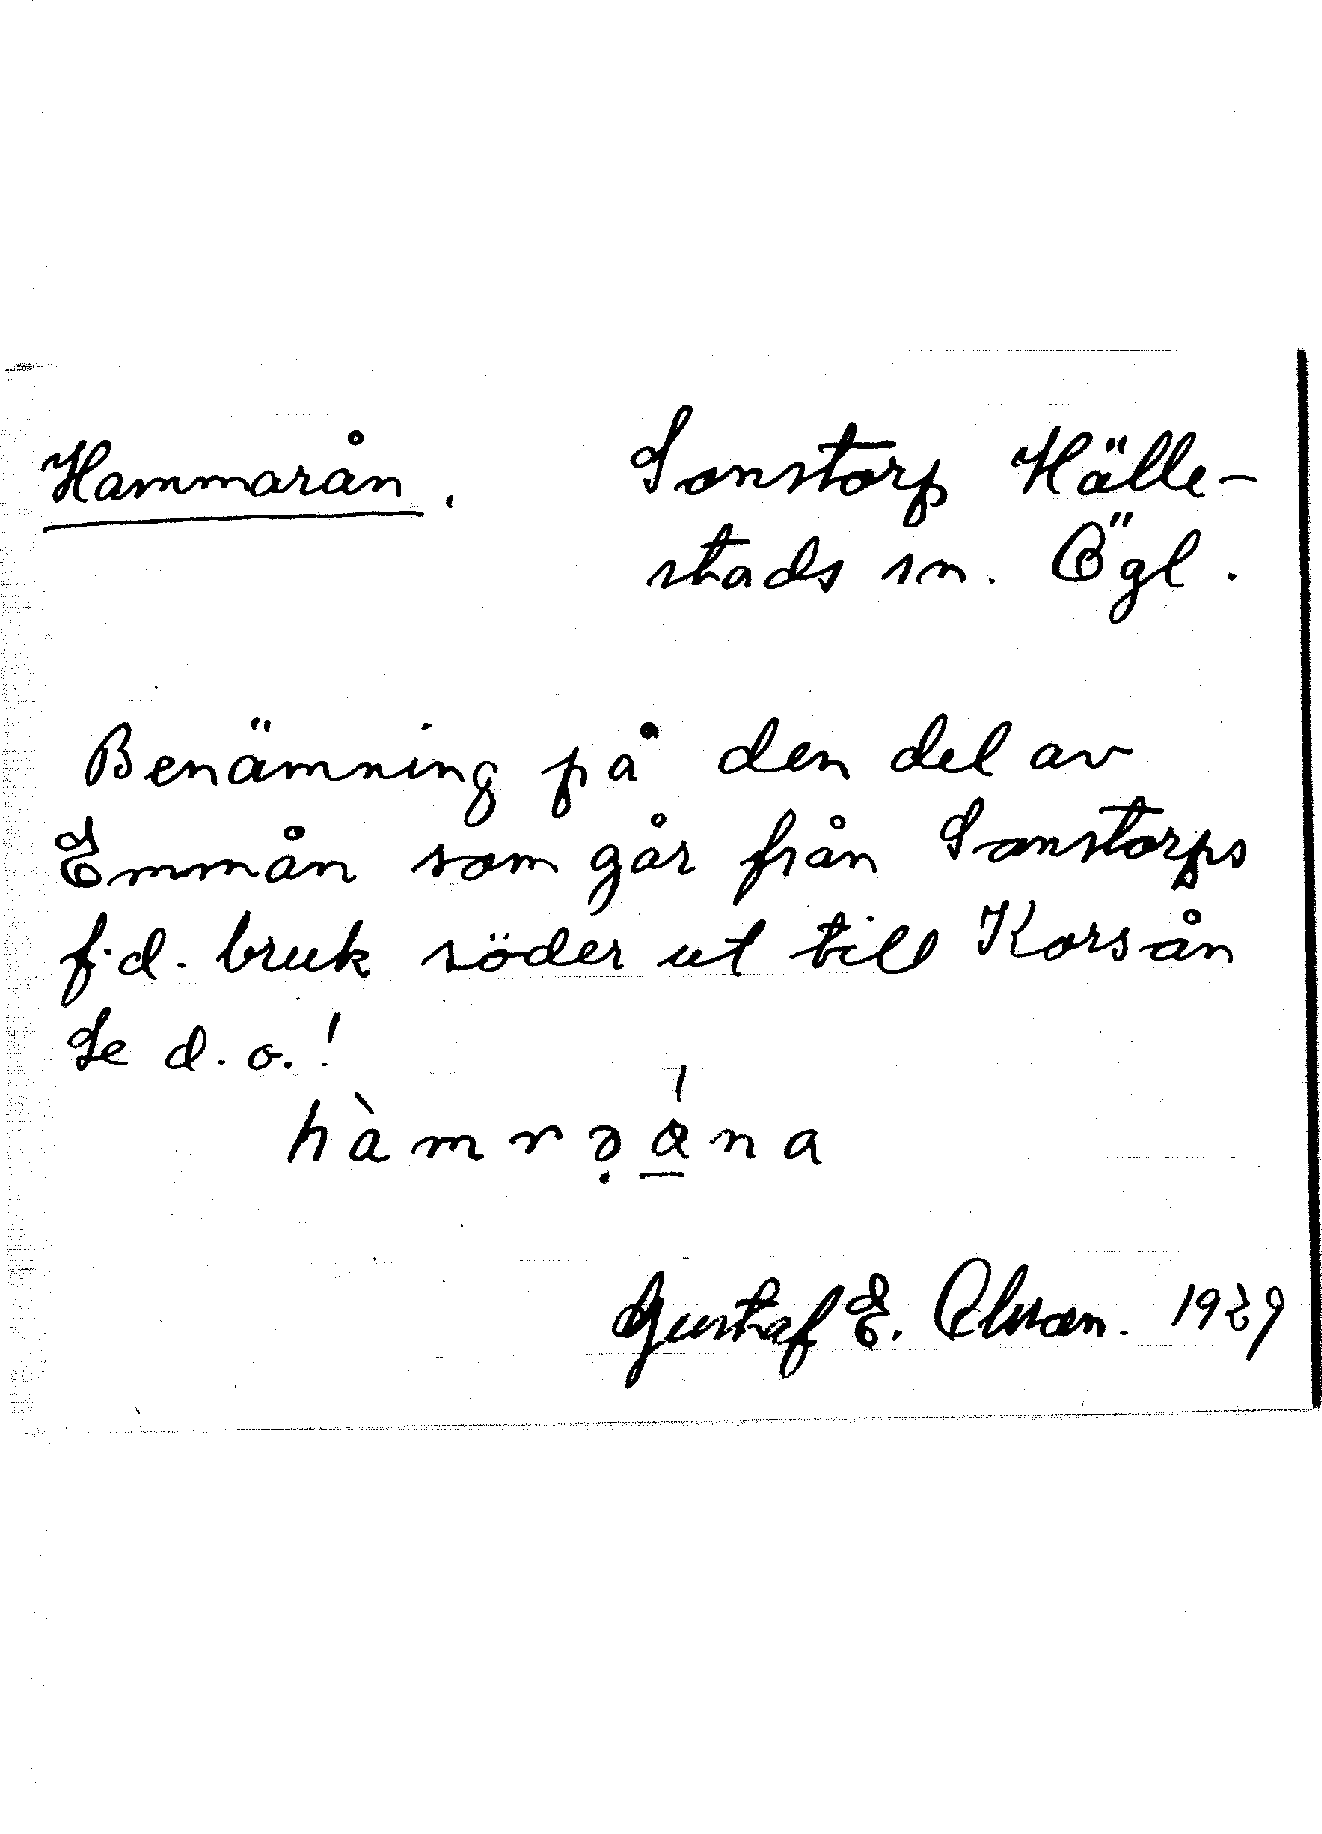 Hammarån. Sonstorp Hälle-
stads sn. Ögl.
Benämning på den del av
Emmån som går från Sonstorps
f.d. bruk söder ut till Korsån
Se d.o.!
Gustaf E. Olsson. 1929